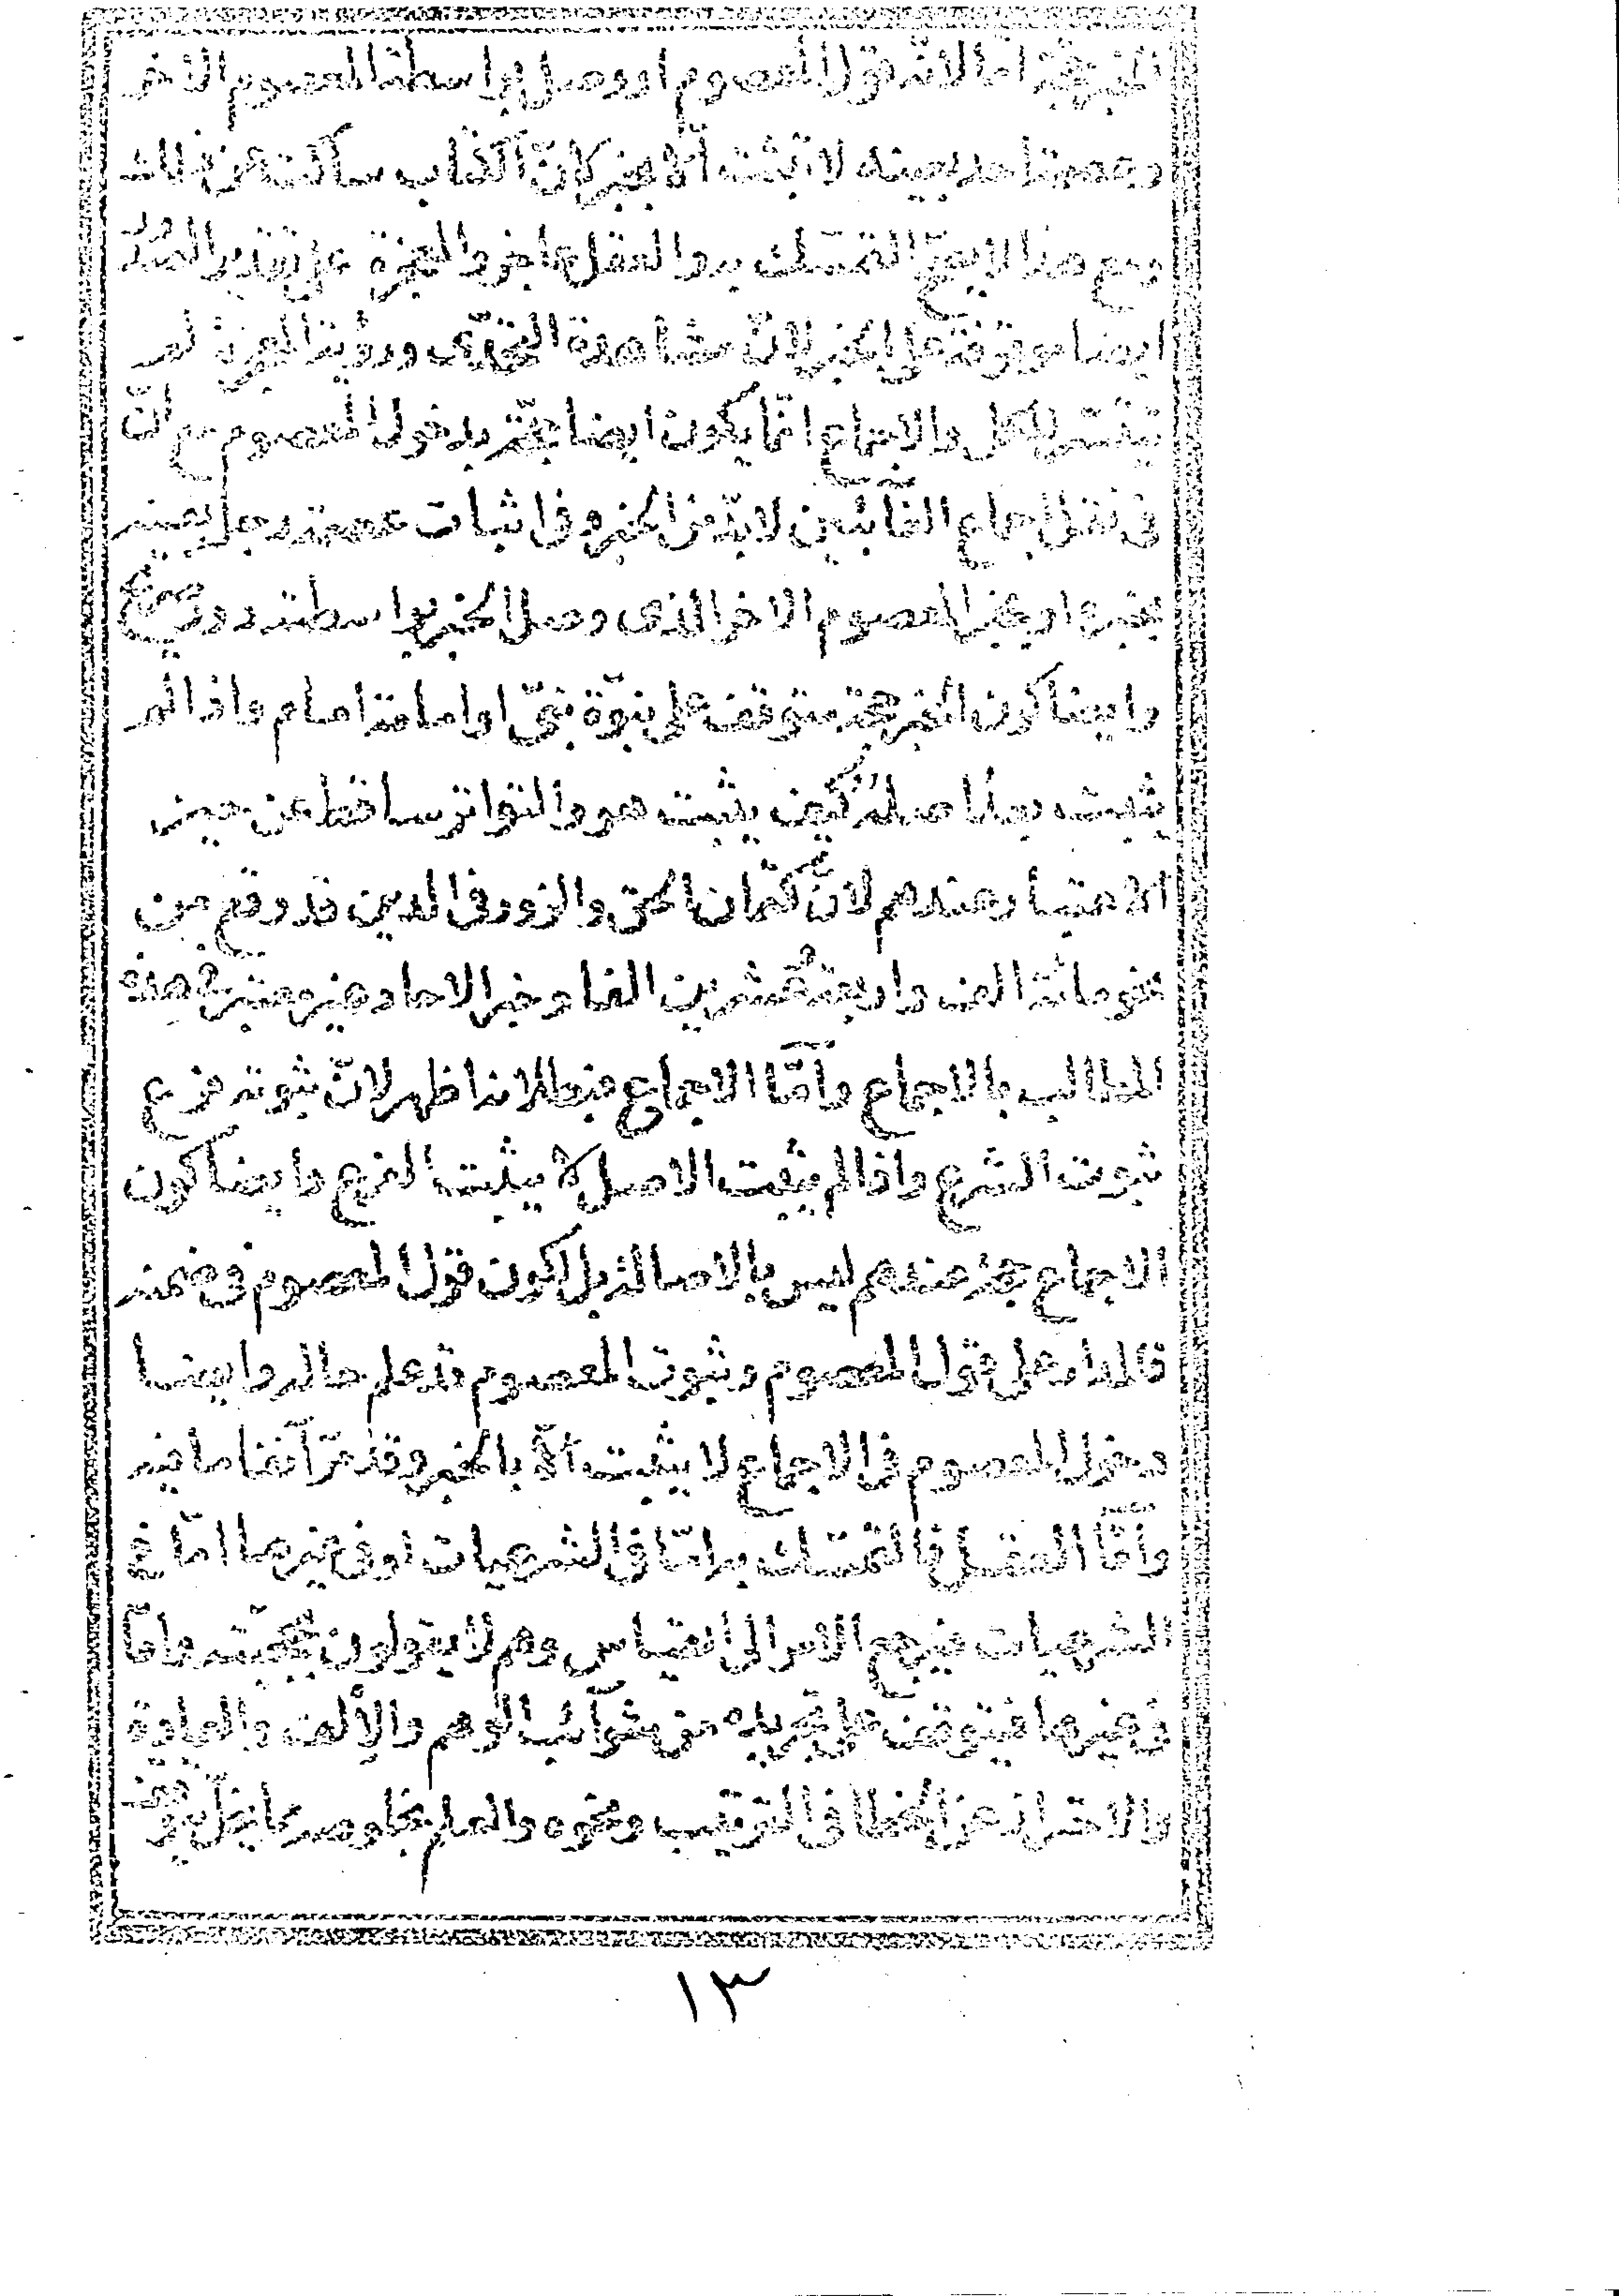 الخبر حجة اما لانه قول المعصوم او وصل بواسطة المعصوم الاخر
وعصمة احد بعينه لا تثبت الا بخبر لان الكتاب ساكت عن ذلك
ومع هذا لا يصح التمسك به والعقل عاجز والمعجزة على تقدير الصدور
ايضا موقوفة على الخبر لان مشاهدة التحدى ورؤية المعجزة لم
تتيسر للكل والاجماع انما يكون ايضا حجة بدخول المعصوم مع ان
فى نقل اجماع الغائبين لابد من الخبر وفى اثبات عصمة رجل بعينه
بخبره او بخبر المعصوم الاخر الذى وصل الخبر بواسطته دور صريح
وايضا كون الخبر حجة يتوقف على نبوة نبى او امامة امام واذا لم
يثبت بعد اصله كيف يثبت هو والتواتر ساقط عن حيز
الاعتبار عندهم لان كتمان الحق والزور فى الدين قد وقع من
نحو مائة الف واربعة وعشرين الفا وخبر الاحاد غير معتبر فى هذه
المطالب بالاجماع واما الاجماع فبطلانه اظهر لان ثبوته فرع
ثبوت الشرع واذا لم يثبت الاصل لا يثبت الفرع وايضا كون
الاجماع حجة عندهم ليس بالاصالة بل لكون قول المعصوم فى ضمنه
فالمدار على قول المعصوم وثبوت المعصوم قد علم حاله وايضا
دخول المعصوم فى الاجماع لا يثبت الا بالخبر وقد مر آنفا ما فيه
واما العقل فالتمسك به اما فى الشرعيات او فى غيرها اما فى
الشرعيات فيرجع الامر الى القياس وهم لا يقولون بحجيته واما
فى غيرها فيتوقف على تجريده من شوائب الوهم والالف والعادة
والاحتراز عن الخطا فى الترتيب ونحوه والعلم
١٣